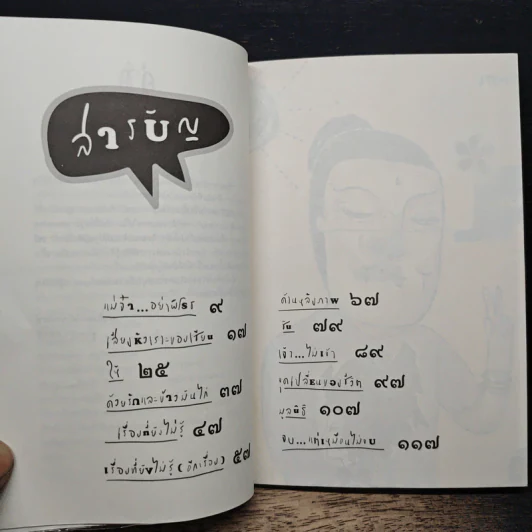 สารบัญ
แม่จ๋า...อย่าพิโรธ ๙
เสียงหัวเราะของเซียน ๑๗
ให้ ๒๕
ด้วยรักและข้าวมันไก่ ๓๗
เรื่องที่ยังไม่รู้ ๔๗
เรื่องที่ยังไม่รู้ (อีกเรื่อง) ๕๗
ด้านสุขภาพ ๖๗
รับ ๗๙
เจ้า...ไม่เข้า ๘๙
จุดเปลี่ยนของชีวิต ๙๗
มูลนิธิ ๑๐๗
จบ...แต่เหมือนไม่จบ ๑๑๗